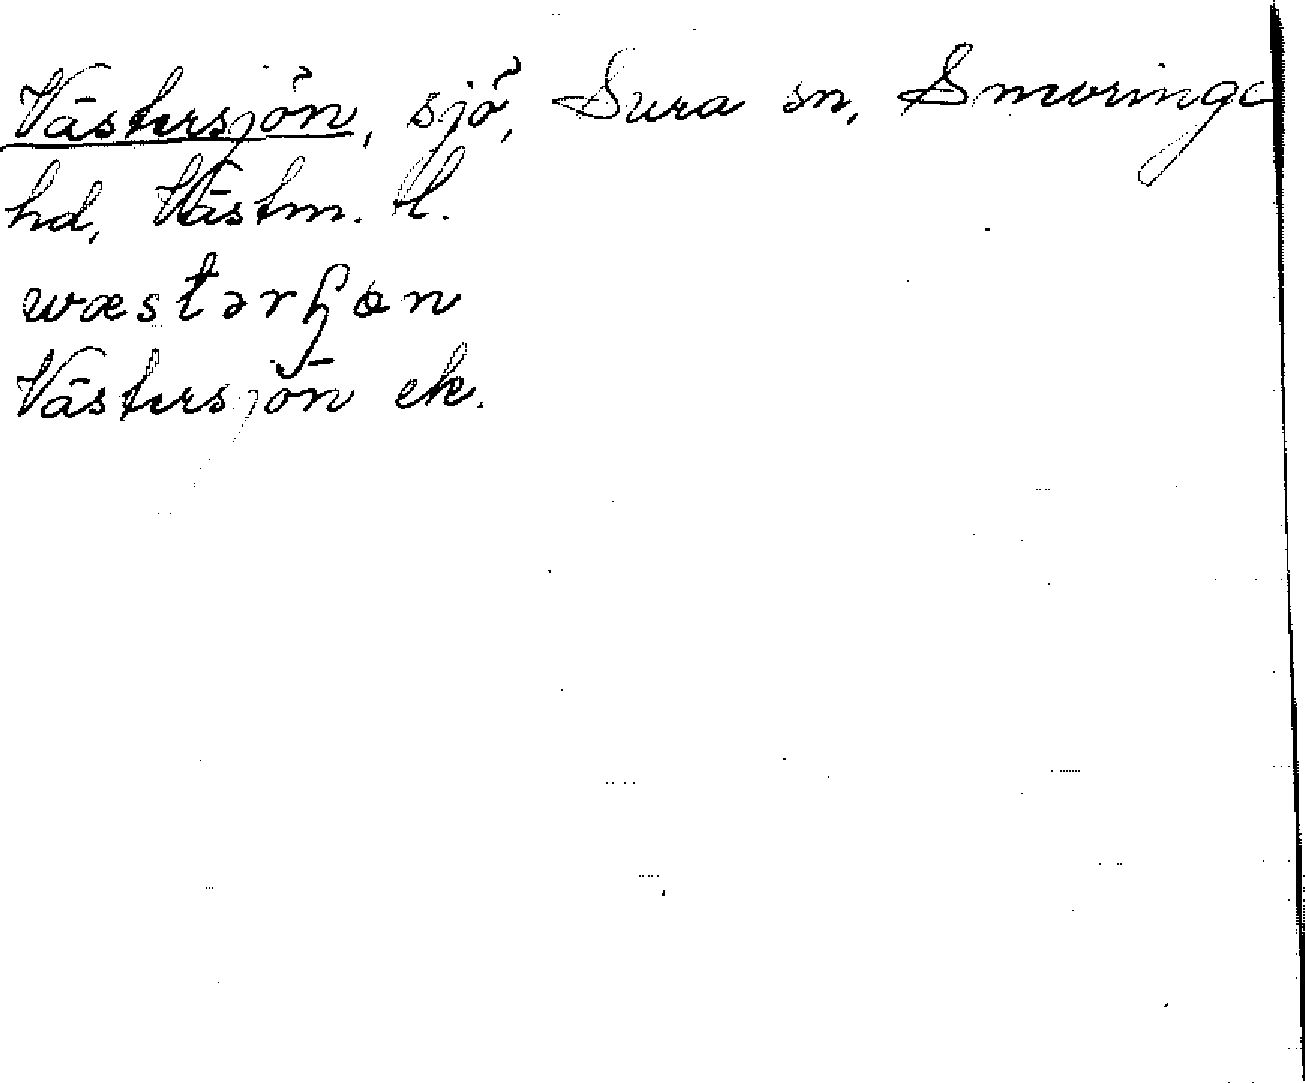 Västersjön, sjö, Sura sn, Snevringe
hd, Västm. l.
Västersjön ek.